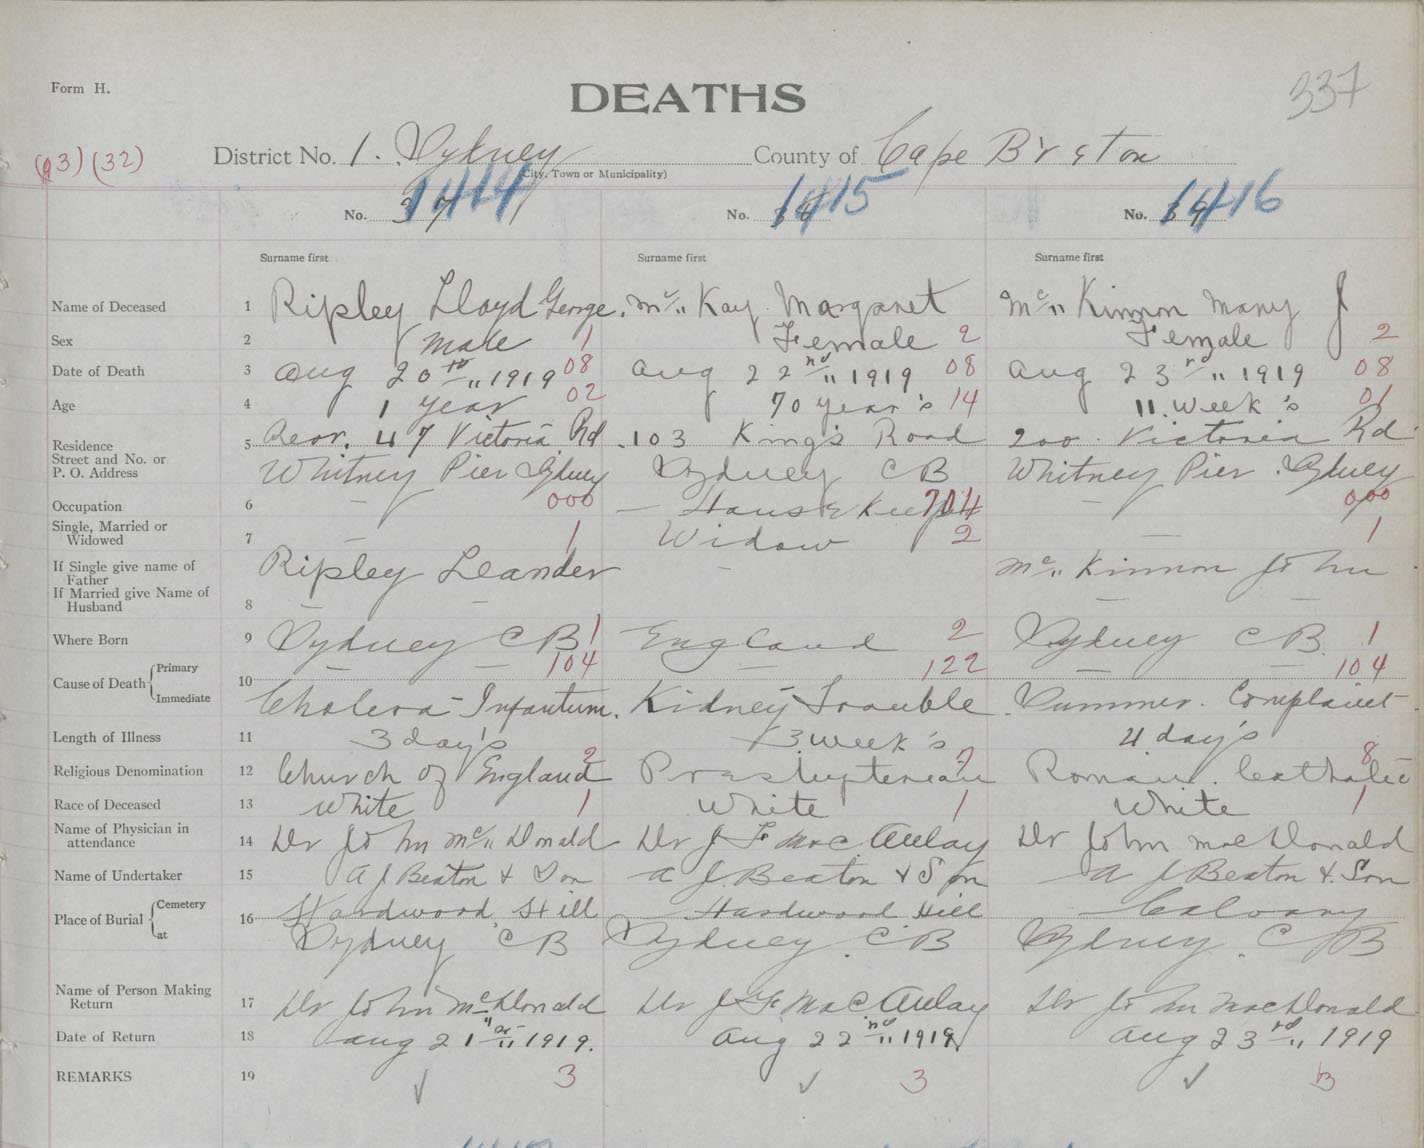 Form H.
DEATHS
337
(A3) (32)
District No. 1. Sydney County of Cape Breton
(City, Town or Municipality)
No. 37 1414 No. 38 1415 No. 39 1416
Surname first Surname first Surname first
Name of Deceased 1 Ripley Lloyd George. Mc" Kay Margaret Mc" Kinnon Mary J
Sex 2 Male 1 Female 2 Female 2
Date of Death 3 Aug 20th " 1919 08 Aug 22nd " 1919 08 Aug 23rd " 1919 08
Age 4 1 year 02 70 year's 14 11. week's 01
Residence 5 Rear. 47 Victoria Rd .103 King's Road 200. Victoria Rd
Street and No. or
P. O. Address Whitney Pier Sydney Sydney C B Whitney Pier. Sydney
Occupation 6 — 000 — House Keeper 704 — 000
Single, Married or
Widowed 7 — 1 Widow 2 — 1
If Single give name of
Father Ripley Leander — Mc" Kinnon John
If Married give Name of
Husband 8 — — — —
Where Born 9 Sydney C B 1 England 2 Sydney C B. 1
Cause of Death Primary 10 — — 104 — 122 — — 104
Immediate Cholera Infantum. Kidney Trouble Summer. Complaint
Length of Illness 11 3 day's 3 week's 4 day's
Religious Denomination 12 Church of England 2 Presbyterian 7 Roman. Catholic 8
Race of Deceased 13 White 1 White 1 White 1
Name of Physician in
attendance 14 Dr John Mc" Donald Dr J F MacAulay Dr John MacDonald
Name of Undertaker 15 A J Beaton & Son A J. Beaton & Son A J Beaton &. Son
Place of Burial Cemetery 16 Hardwood Hill Hardwood Hill Calvary
at Sydney C B Sydney. C. B Sydney. C B
Name of Person Making
Return 17 Dr John McDonald Dr J F MacAulay Dr John MacDonald
Date of Return 18 Aug 21st " 1919. Aug 22nd " 1919. Aug 23rd " 1919
REMARKS 19 ✓ 3 ✓ 3 ✓ 3